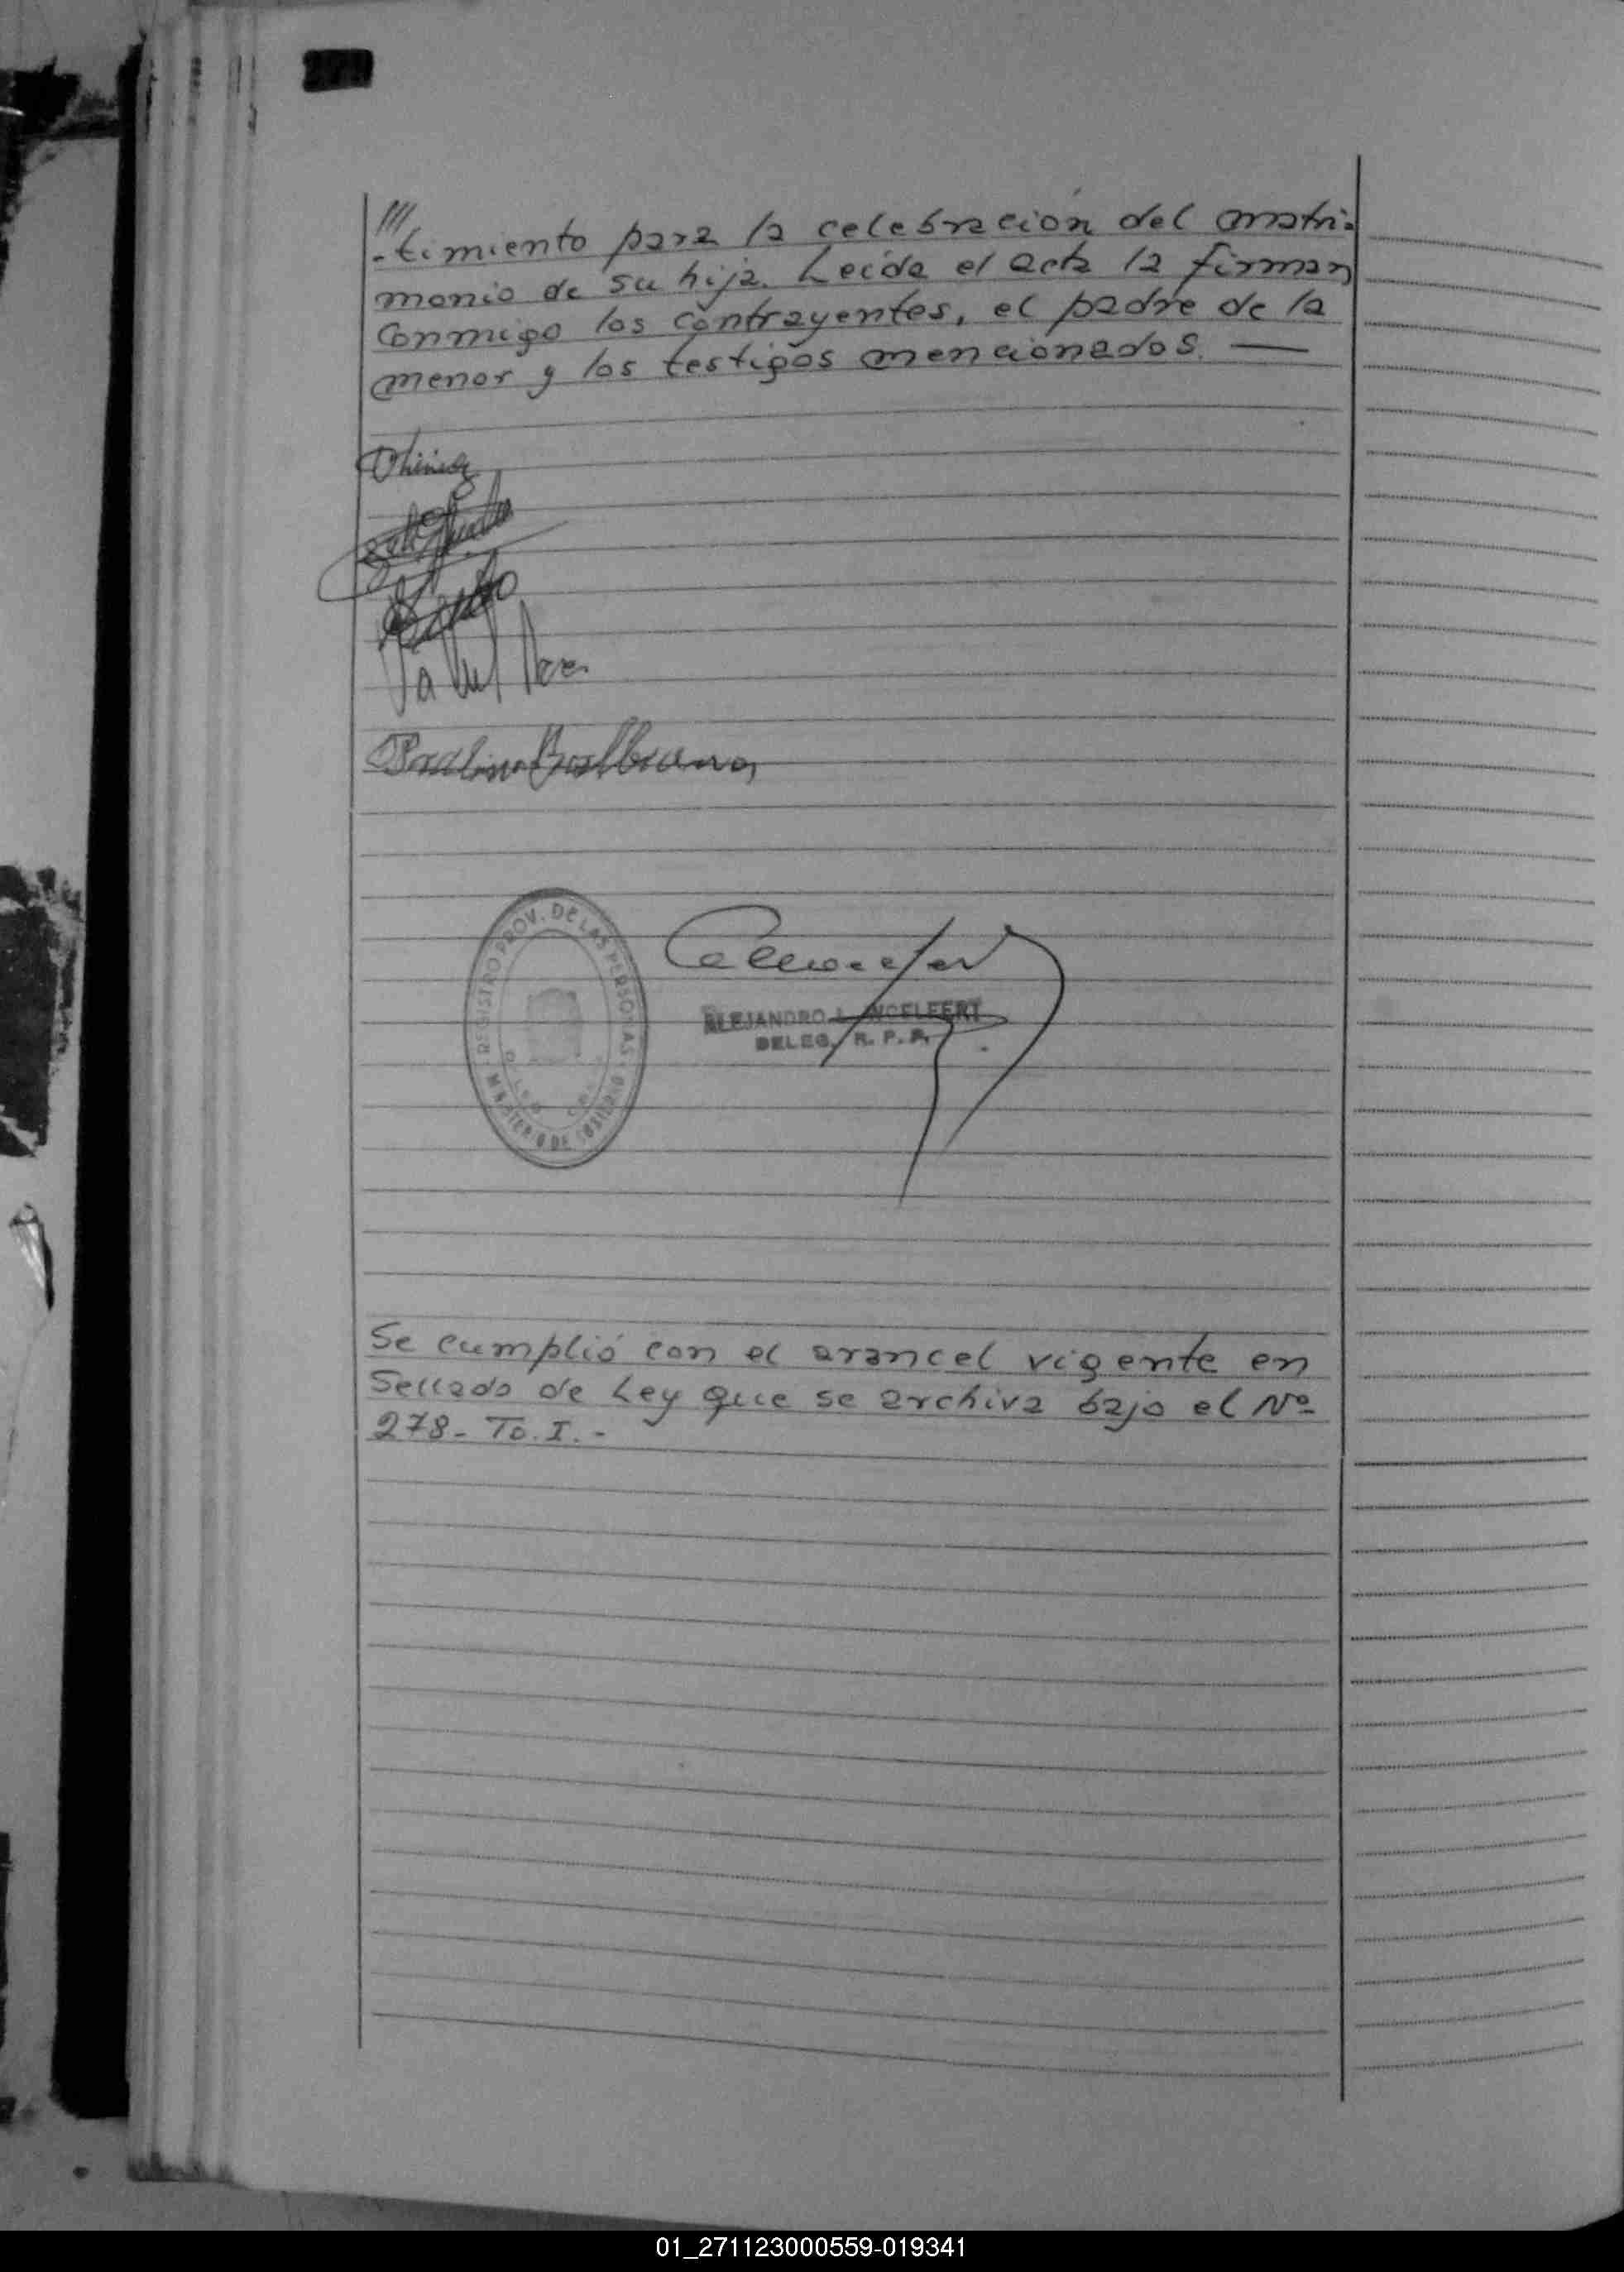 ///
-timiento para la celebración del matri-
monio de su hija. Leída el acta la firman
conmigo los contrayentes, el padre de la
menor y los testigos mencionados. —
REGISTRO PROV. DE LAS PERSONAS
MINISTERIO DE GOBIERNO
ALEJANDRO
DELEG. R. P. P.
Se cumplió con el arancel vigente en
Sellado de Ley que se archiva bajo el Nº
278- To. I. -
01_271123000559-019341